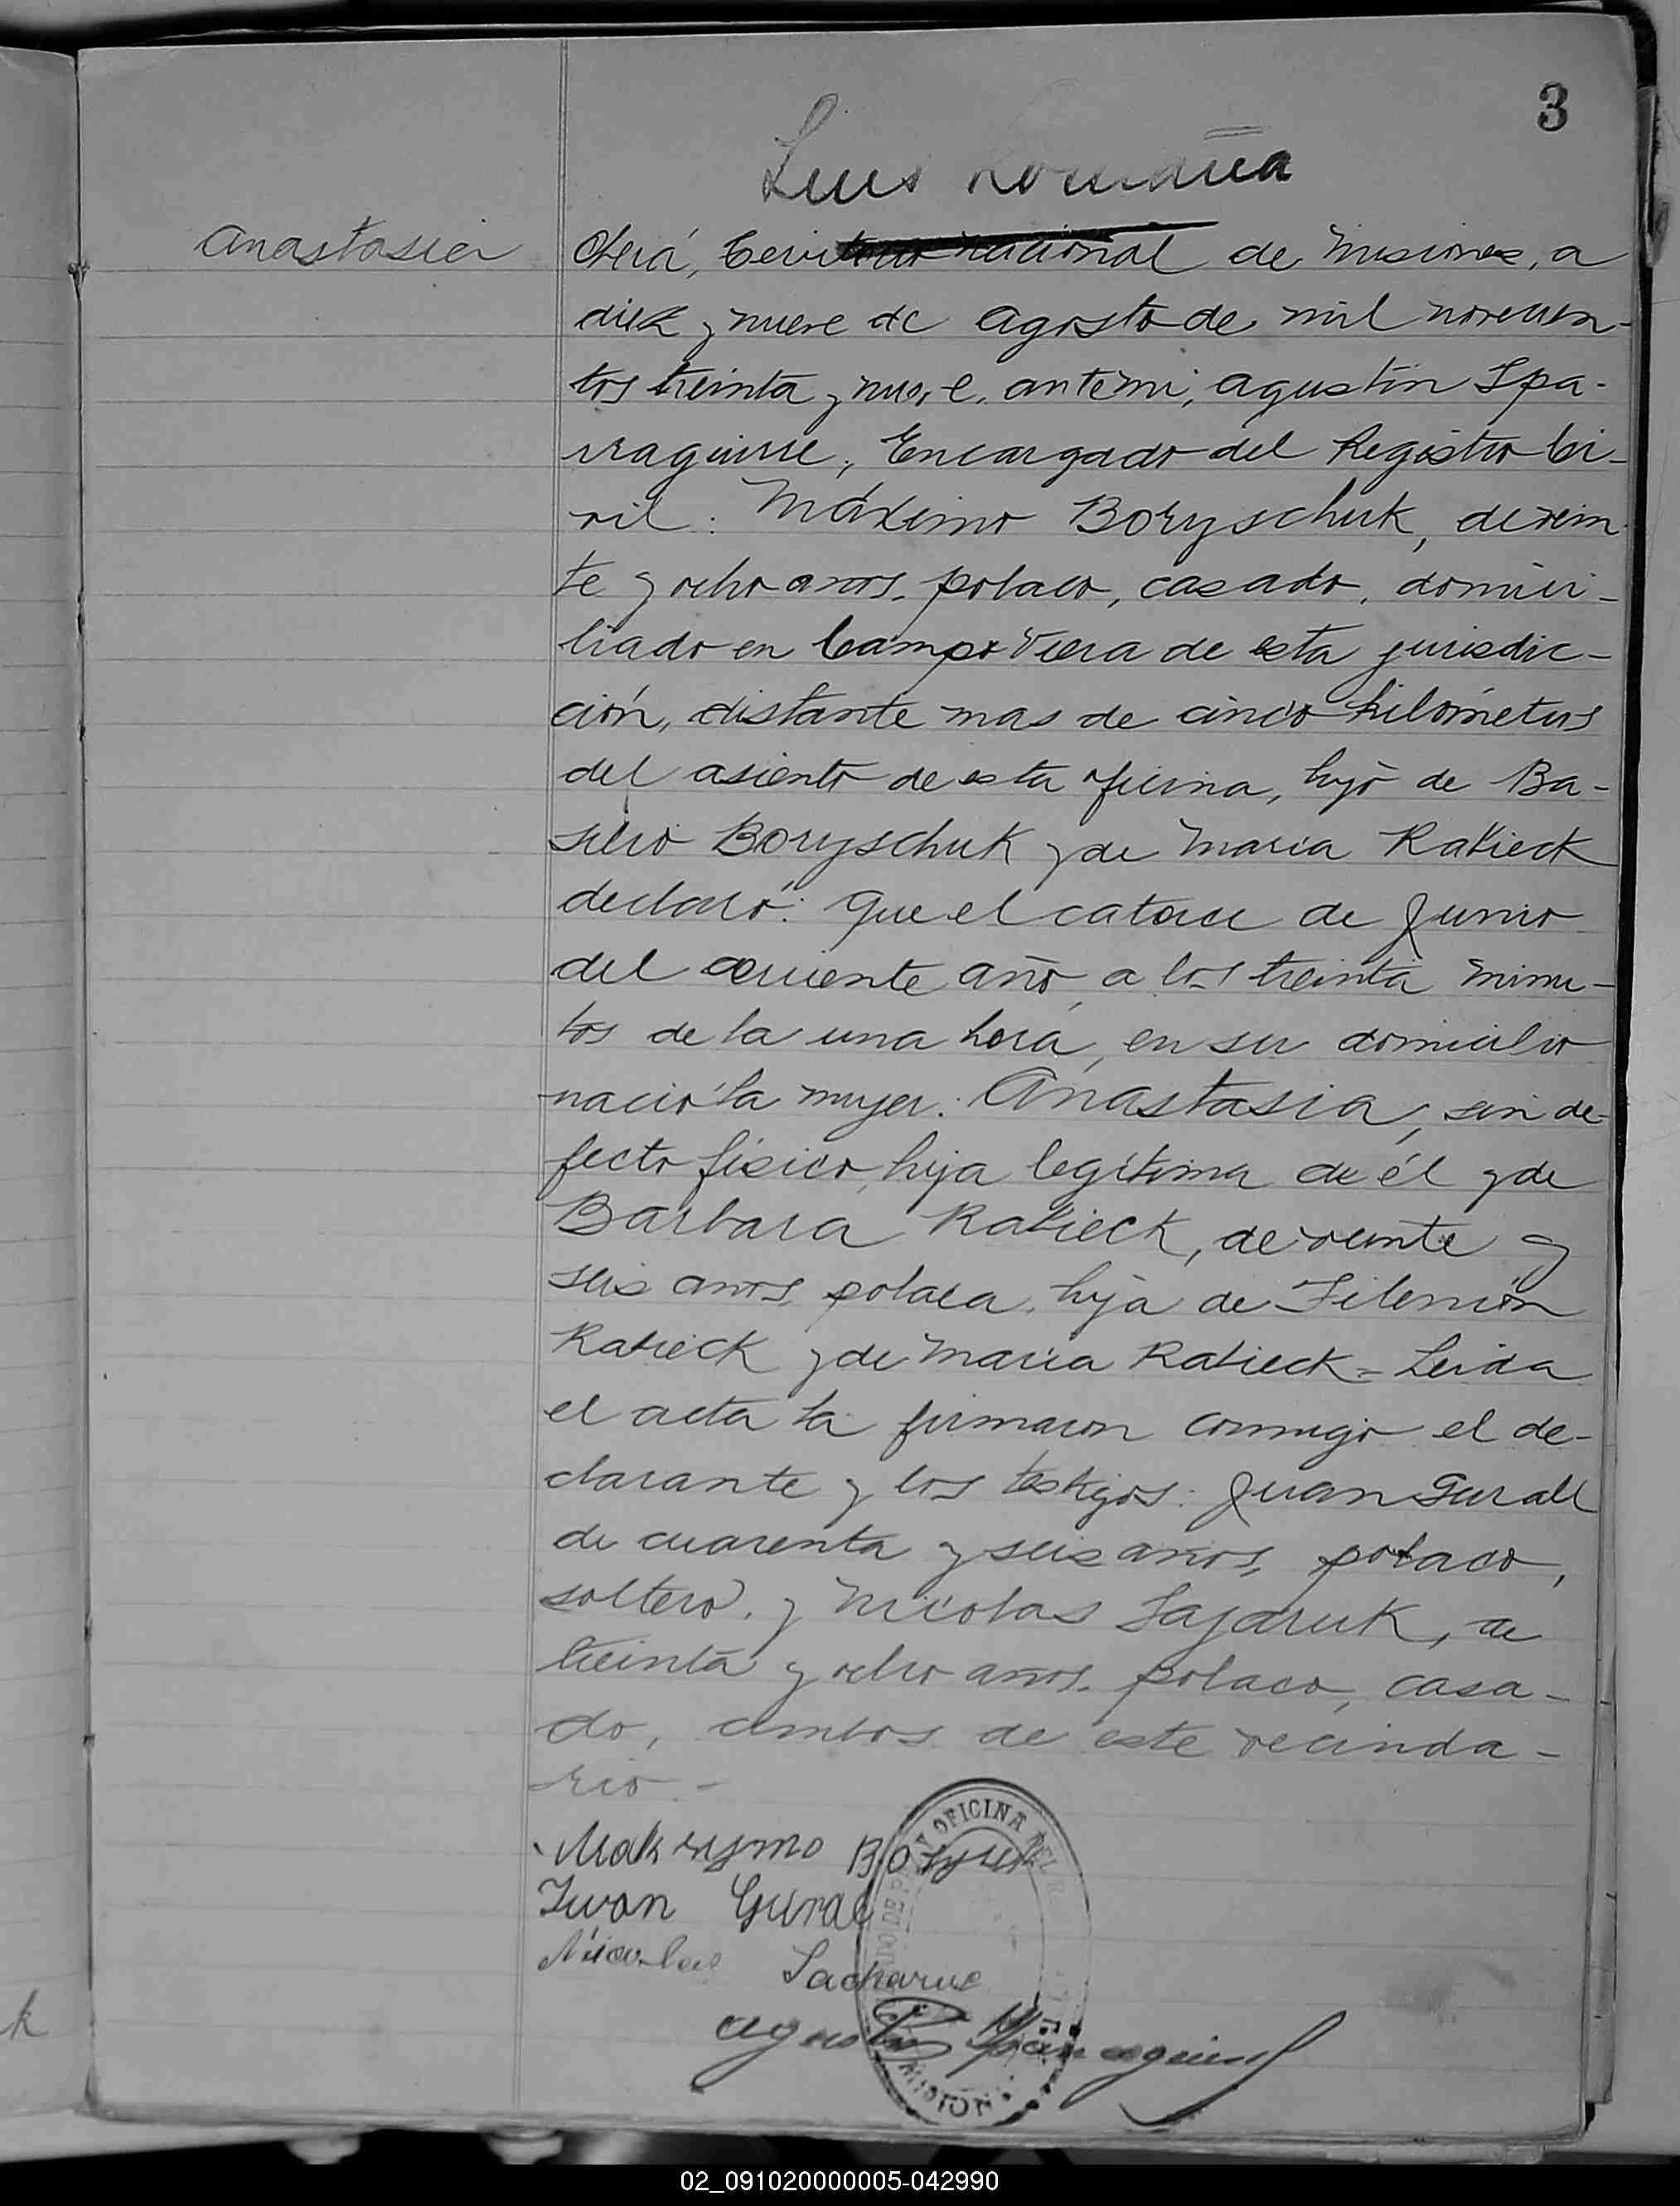 3
Luis Romaña
Anastasia
Oberá, Territorio Nacional de Misiones, a
diez y nueve de Agosto de mil novecien-
tos treinta y nueve, ante mi, Agustín Ypa-
rraguirre, Encargado del Registro Ci-
vil: Máximo Boryschuk, de vein-
te y ocho anos, polaco, casado, domici-
liado en Campo Viera de esta jurisdic-
ción, distante mas de cinco kilómetros
del asiento de esta oficina, hijo de Ba-
silio Boryschuk y de Maria Ratieck
declaró: Que el catorce de Junio
del corriente año, a los treinta minu-
tos de la una hora, en su domicilio
nació la mujer: Anastasia, sin de-
fecto físico, hija legítima de él y de
Barbara Ratieck, de veinte y
seis anos, polaca, hija de Filemón
Ratieck y de Maria Ratieck = Leida
el acta la firmaron conmigo el de-
clarante y los testigos: Juan Gurall
de cuarenta y seis anos, polaco,
soltero, y Nicolas Sajaruk, de
treinta y ocho anos, polaco, casa-
do, ambos de este vecinda-
rio -
Maksymo
Iwan Gural
Nicolas Sacharuc
Agustin Yparraguirre
OFICINA DEL
k
02_091020000005-042990